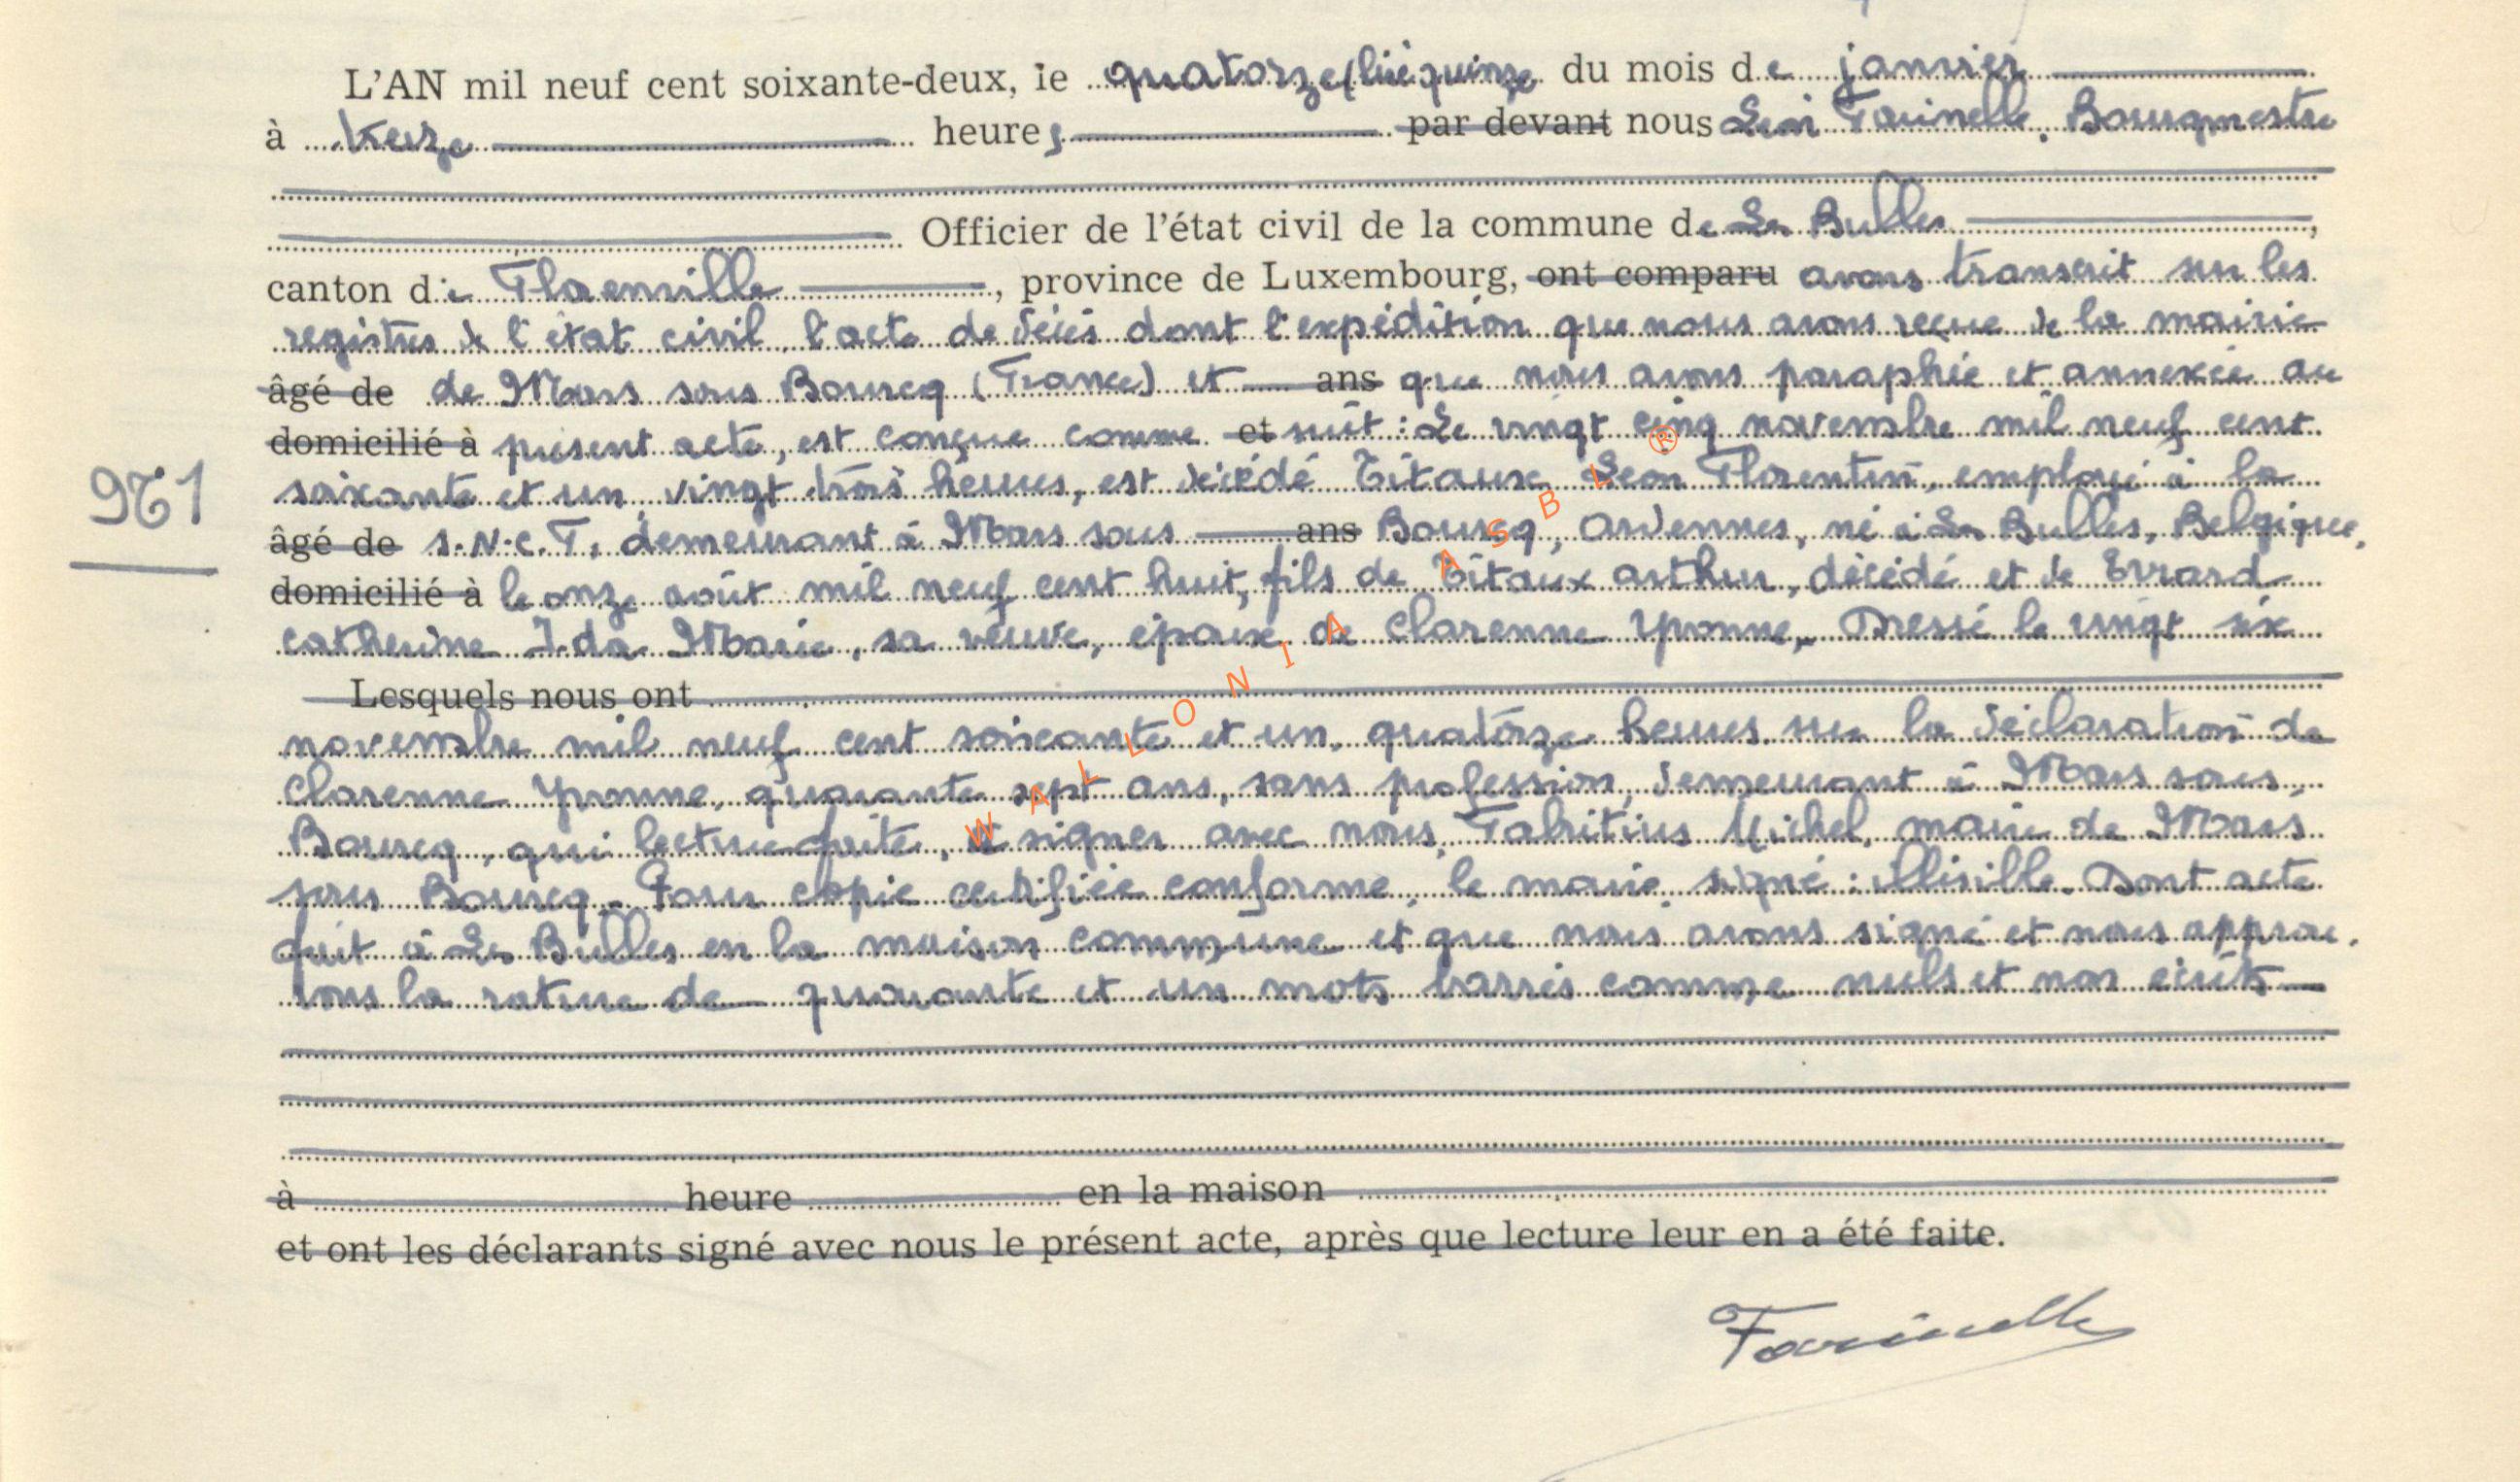 L'AN mil neuf cent soixante-deux, le quatorze (lire quinze du mois de janvier
à treize heures par devant nous Léon Farinelle. Bourgmestre
Officier de l'état civil de la commune de Les Bulles,
canton de Florenville, province de Luxembourg, ont comparu avons transcrit sur les
registres de l'état civil, l'acte de décès dont l'expédition que nous avons reçue de la mairie
âgé de de Mars sous Bourcq (France) et ans que nous avons paraphée et annexée au
domicilié à présent acte, est conçue comme et suit : Le vingt cinq novembre mil neuf cent
soixante et un, vingt trois heures, est décédé Titaux Leon Florentin, employé à la
961
âgé de S.N.C.F, demeurant à Mars sous ans Bourcq, Ardennes, né à Les Bulles, Belgique,
domicilié à le onze août mil neuf cent huit, fils de Titaux Arthur, décédé et de Evrard
Catherine Ida Marie, sa veuve, époux de Clarenne Yvonne, Dressé le vingt six
Lesquels nous ont
novembre mil neuf cent soixante et un, quatorze heures sur la déclaration de
Clarenne Yvonne, quarante sept ans, sans profession, demeurant à Mars sous
Bourcq, qui lecture faite, a signer avec nous, Fabritius Michel, maire de Mars
sous Bourcq. Pour copie certifiée conforme, le maire. signé : illisible. Dont acte
fait à Les Bulles en la maison commune et que nous avons signé et nous approu.
vons la rature de quarante et un mots barrés comme nuls et non écrits
à heure en la maison
et ont les déclarants signé avec nous le présent acte, après que lecture leur en a été faite.
Farinelle
WALLONIA ASBL ®